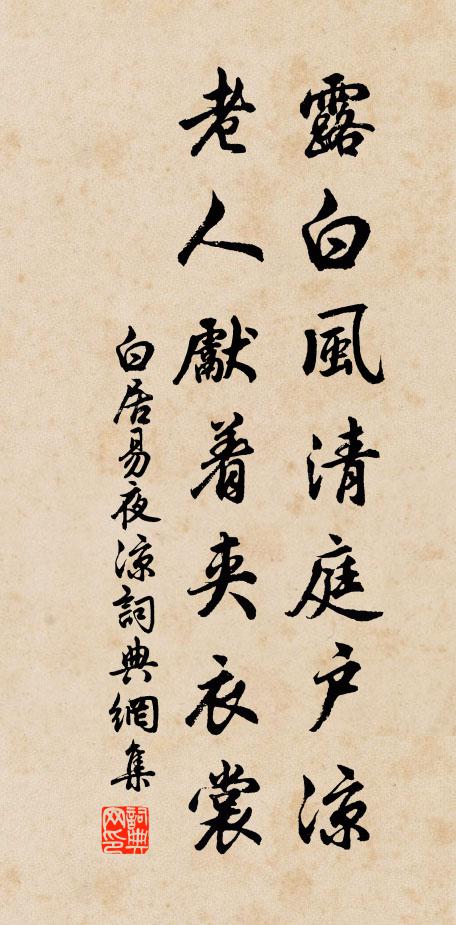 露白風清庭户涼
老人獻着夹衣裳
白居易夜涼詞典網集
詞典网印